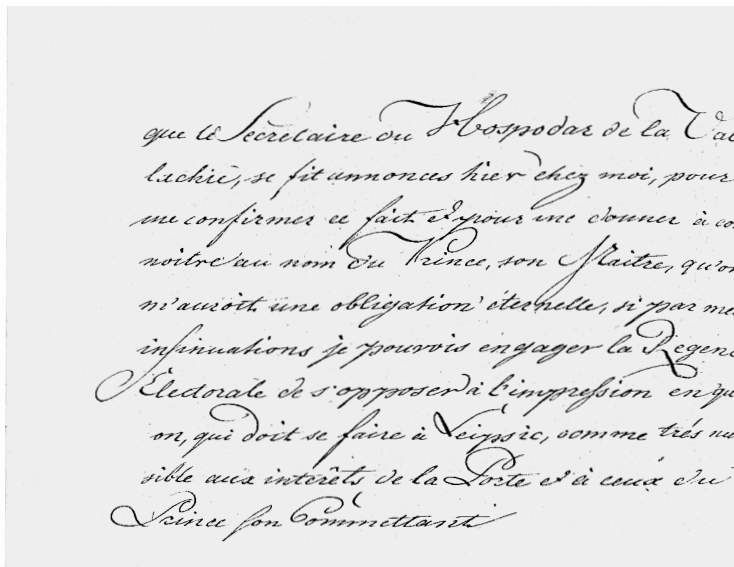 que le Secrétaire du Hospodar de la Val
lachie, se fit annoncer hier chez moi, pour
me confirmer ce fait et pour me donner à con
noitre au nom du Prince, son Maitre, qu'on
m'auroit une obligation éternelle, si par mes
insinuations je pouvois engager la Régenc
Electorale de s'opposer à l'impression en que
on, qui doit se faire à Leipsic, comme trés nui
sible aux interêts de la Porte et à ceux du
Prince son Committant